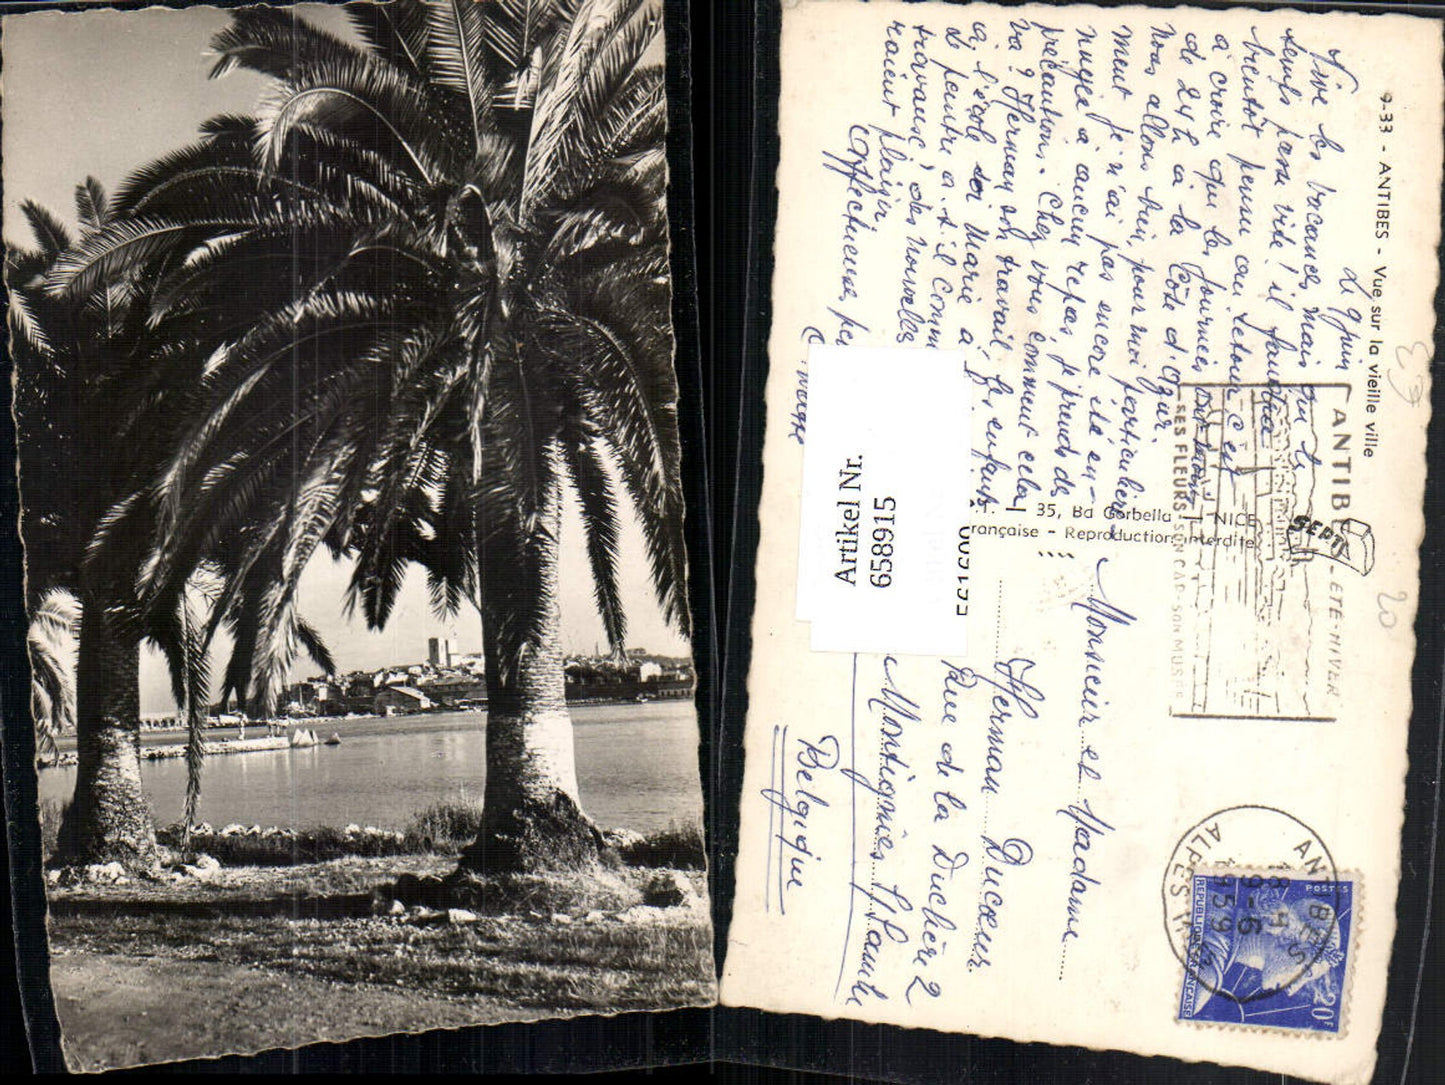 9-33 - ANTIBES - Vue sur la vieille ville
Le 9 juin
Vive les vacances, mais que le
temps passe vite! il faudra
bientôt penser au retour - c'est
à croire que les journées
de 24 h à la Côte d'Azur.
Nous allons bien, pour moi particulière-
ment je n'ai pas encore été en-
nuyée à aucun repas, je prends des
précautions. Chez vous comment cela
va? Herman son travail, les enfants
à l'école et Marie à
la peinture a-t-il comm
travaux, des nouvelles
raient plaisir
Affectueuse
35, Bd Gorbella - NICE
rançaise - Reproduction interdite
ANTIBES
SEPT
ÉTÉ-HIVER
SES FLEURS-SON CAP-SON MUSÉE
Monsieur et Madame
Herman Ducœur
Rue de la Duchère 2
Montignies s/Sambre
Belgique
ANTIBES
18 H
9-6
1959
ALPES MMES
POSTES
REPUBLIQUE FRANÇAISE
20F
Artikel Nr.
658915